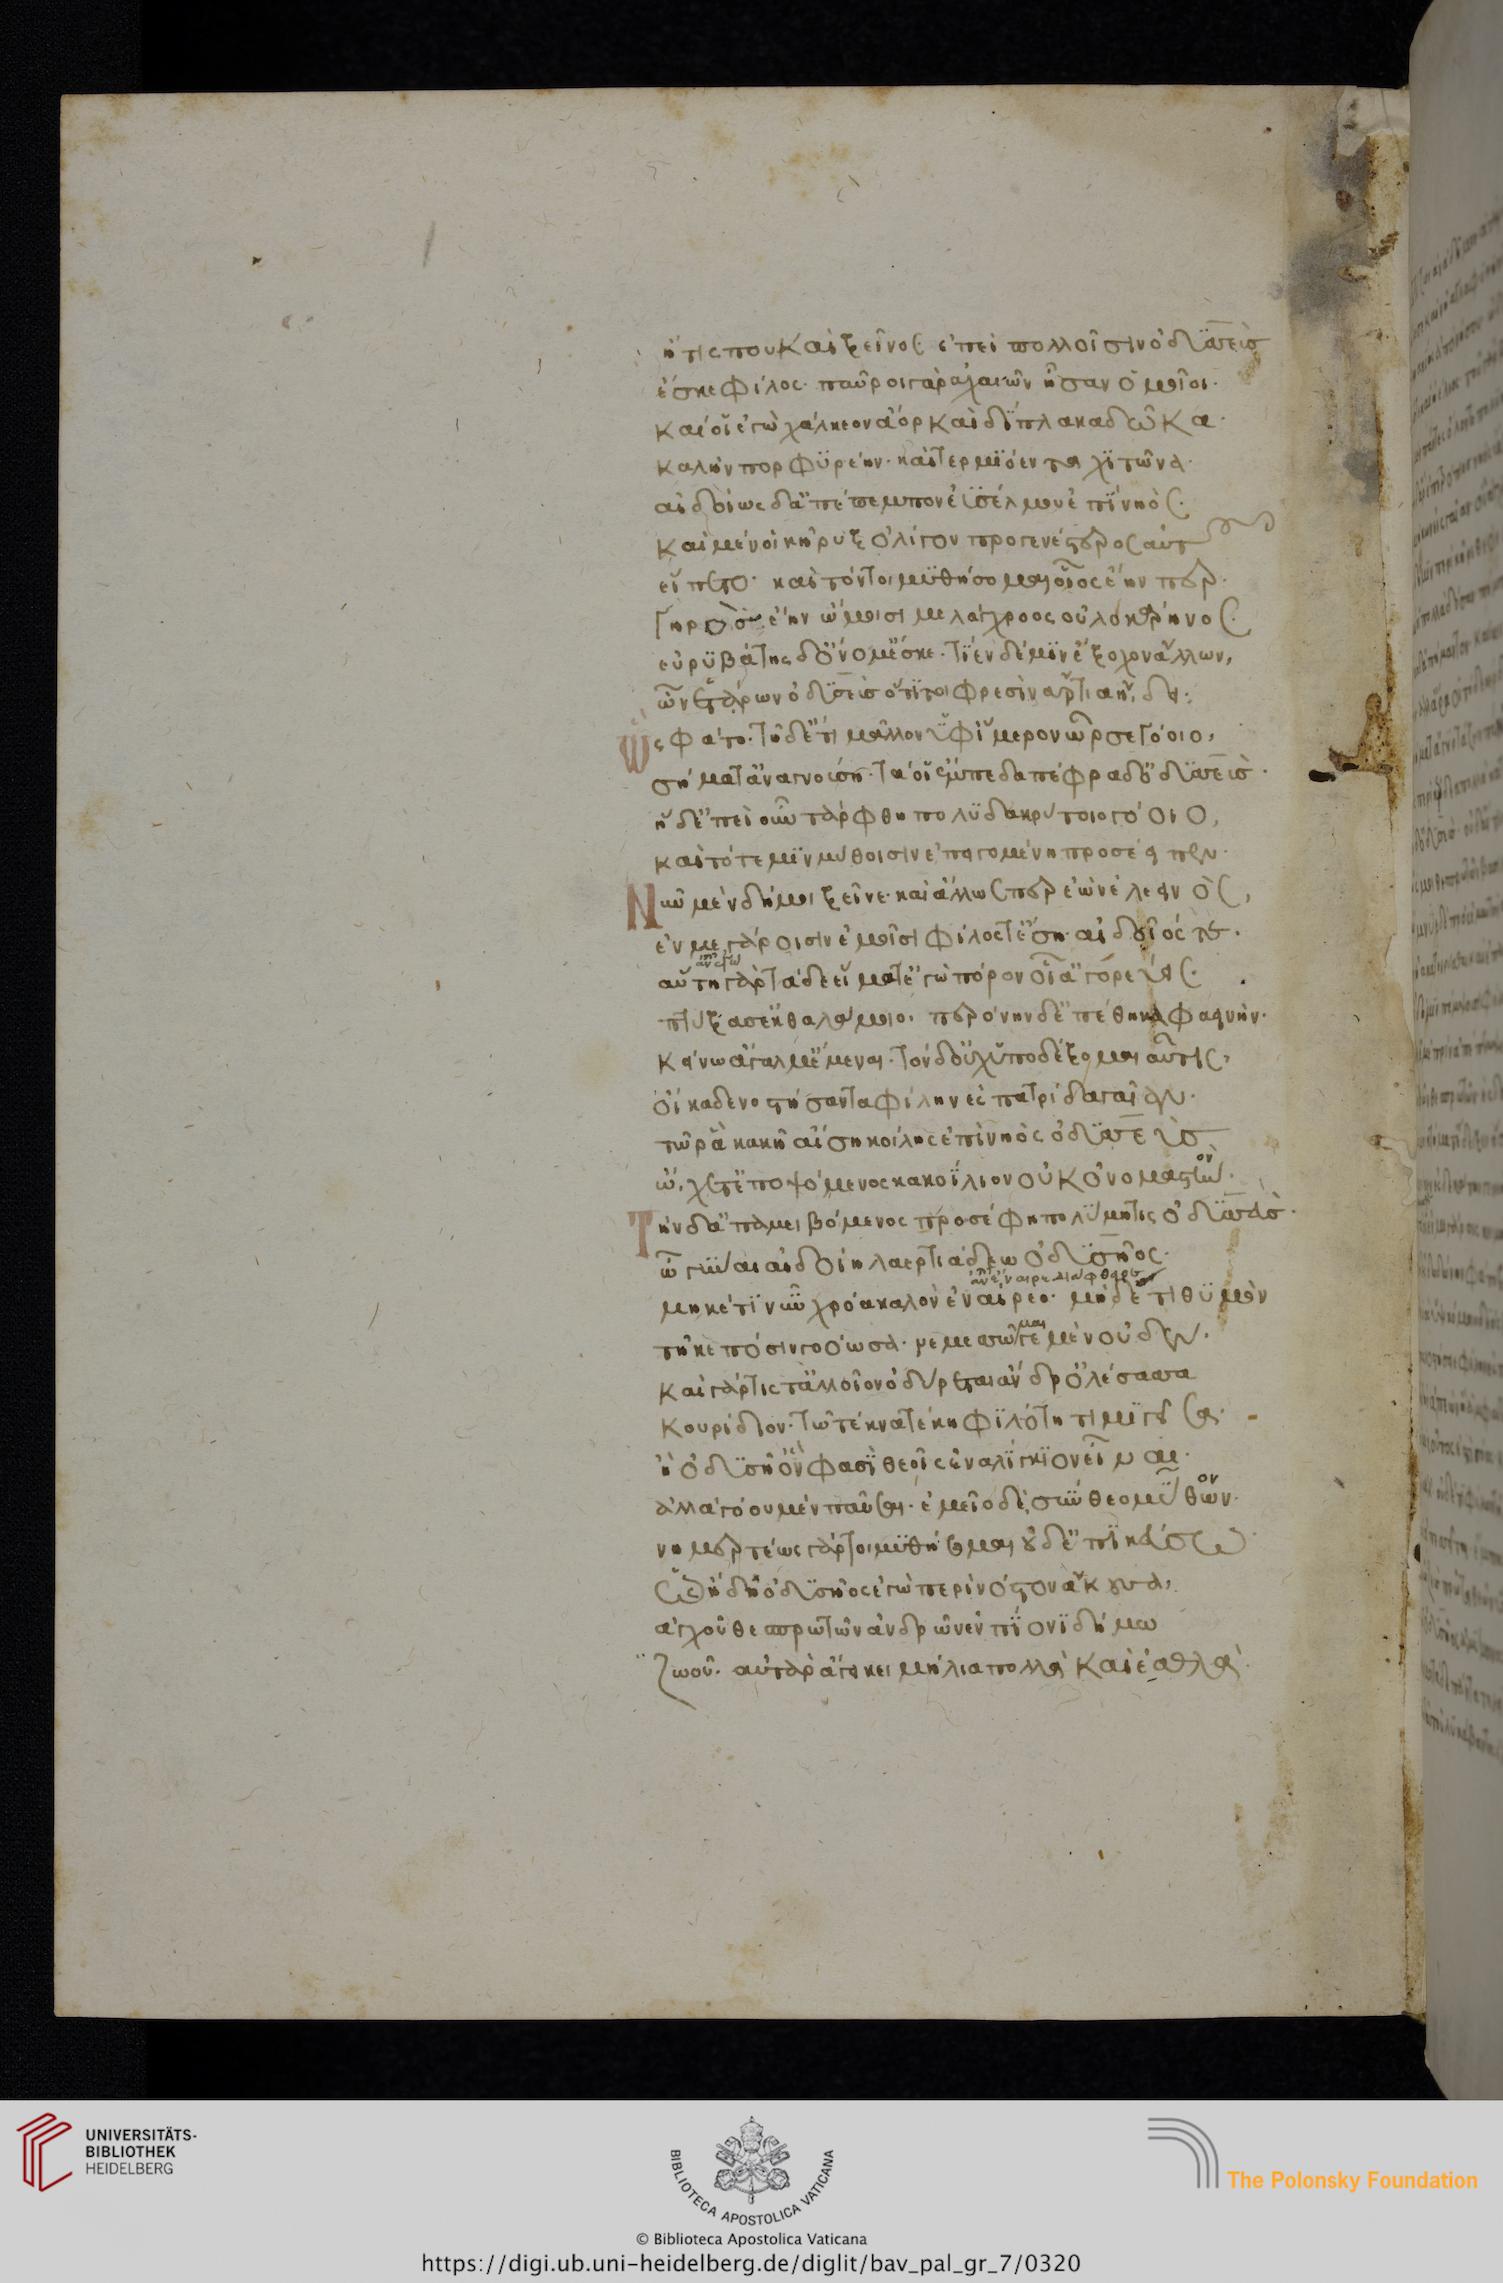 ἤ τίς που καὶ ξεῖνος ἐπεὶ πολλοῖσιν ὀδυσσεὺς
ἔσκε φίλος· παῦροι γὰρ ἀχαιῶν ἦσαν ὁμοῖοι·
καί οἱ ἐγὼ χάλκεον ἄορ καὶ δίπλακα δῶκα·
καλὴν πορφυρέην· καὶ τερμιόεντα χιτῶνα·
αἰδοίως δ' ἀπέπεμπον ἐϋσσέλμου ἐπὶ νηός·
καὶ μέν οἱ κῆρυξ ὀλίγον προγενέστερος αὐτοῦ
εἵπετο· καὶ τόν τοι μυθήσομαι οἷος ἔην περ·
ἔην ὤμοισι μελάγχροος οὐλοκάρηνος·
εὐρυβάτης δ' ὄνομ' ἔσκε· τίεν δέ μιν ἔξοχον ἄλλων,
ὧν ἑτάρων ὀδυσσεὺς ὅτι οἱ φρεσὶν ἄρτια ᾔδη·
ὣς φάτο· τῇ δ' ἔτι μᾶλλον ὑφ' ἵμερον ὦρσε γόοιο,
σήματ' ἀναγνούσῃ· τά οἱ ἔμπεδα πέφραδ' ὀδυσσεὺς·
ἡ δ' ἐπεὶ οὖν τάρφθη πολυδακρύτοιο γόοιο,
καὶ τότε μιν μύθοισιν προσέειπεν·
Νῦν μὲν δή μοι ξεῖνε· καὶ ἄλλως περ ἐὼν ἐλεεινός,
ἐν μεγάροισιν ἐμοῖσι φίλος τ' ἔσῃ αἰδοῖός τε·
αὐτὴ γὰρ τάδε εἵματ' ἐγὼ πόρον οἷ' ἀγορεύεις·
πτύξασ' ἐκ θαλάμοιο· περόνην δ' ἐπέθηκα φαεινήν·
κείνῳ ἄγαλμ' ἔμεναι· τὸν δ' οὐχ ὑποδέξομαι αὖτις,
οἴκαδε νοστήσαντα φίλην ἐς πατρίδα γαῖαν·
τῷ ῥα κακῇ αἴσῃ κοίλης ἐπὶ νηὸς ὀδυσσεὺς
ᾤχετ' ἐποψόμενος κακοΐλιον οὐκ ὀνομαστὸν·
Τὴν δ' ἀπαμειβόμενος προσέφη πολύμητις ὀδυσσεὺς·
ὦ γύναι αἰδοίη λαερτιάδεω ὀδυσῆος·
μηκέτι νῦν χρόα καλὸν ἐναίρεο· μηδέ τι θυμὸν
τῆκε πόσιν γοόωσα· νεμεσσῶμαί γε μὲν οὐδέν·
καὶ γάρ τίς τ' ἀλλοῖον ὀδύρεται ἄνδρ' ὀλέσασα
κουρίδιον· τῷ τέκνα τέκῃ φιλότητι μιγεῖσα·
ἢ ὀδυσῆ' ὅν φασὶ θεοῖς ἐναλίγκιον εἶναι·
ἀλλὰ γόου μὲν παῦσαι· ἐμεῖο δὲ σύνθεο μῦθον·
νημερτέως γάρ τοι μυθήσομαι οὐδ' ἐπικεύσω
ὡς ἤδη ὀδυσῆος ἐγὼ περὶ νόστου ἄκουσα,
ἀγχοῦ θεσπρωτῶν ἀνδρῶν ἐν πίονι δήμω
ζωοῦ· αὐτὰρ ἄγει κειμήλια πολλὰ καὶ ἐσθλὰ·
UNIVERSITÄTS-
BIBLIOTHEK
HEIDELBERG
BIBLIOTECA APOSTOLICA VATICANA
The Polonsky Foundation
© Biblioteca Apostolica Vaticana
https://digi.ub.uni-heidelberg.de/diglit/bav_pal_gr_7/0320